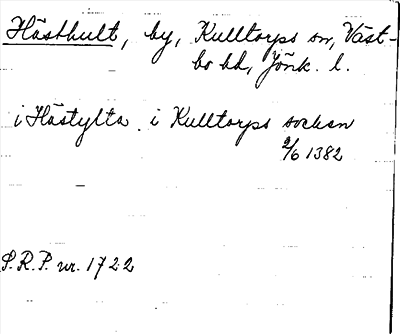 Hästhult, by, Kulltorps sn, Väst-
bo hd, Jönk. l.
i Hästylta i Kulltorps socken
2/6 1382
S.R.P. nr. 1722